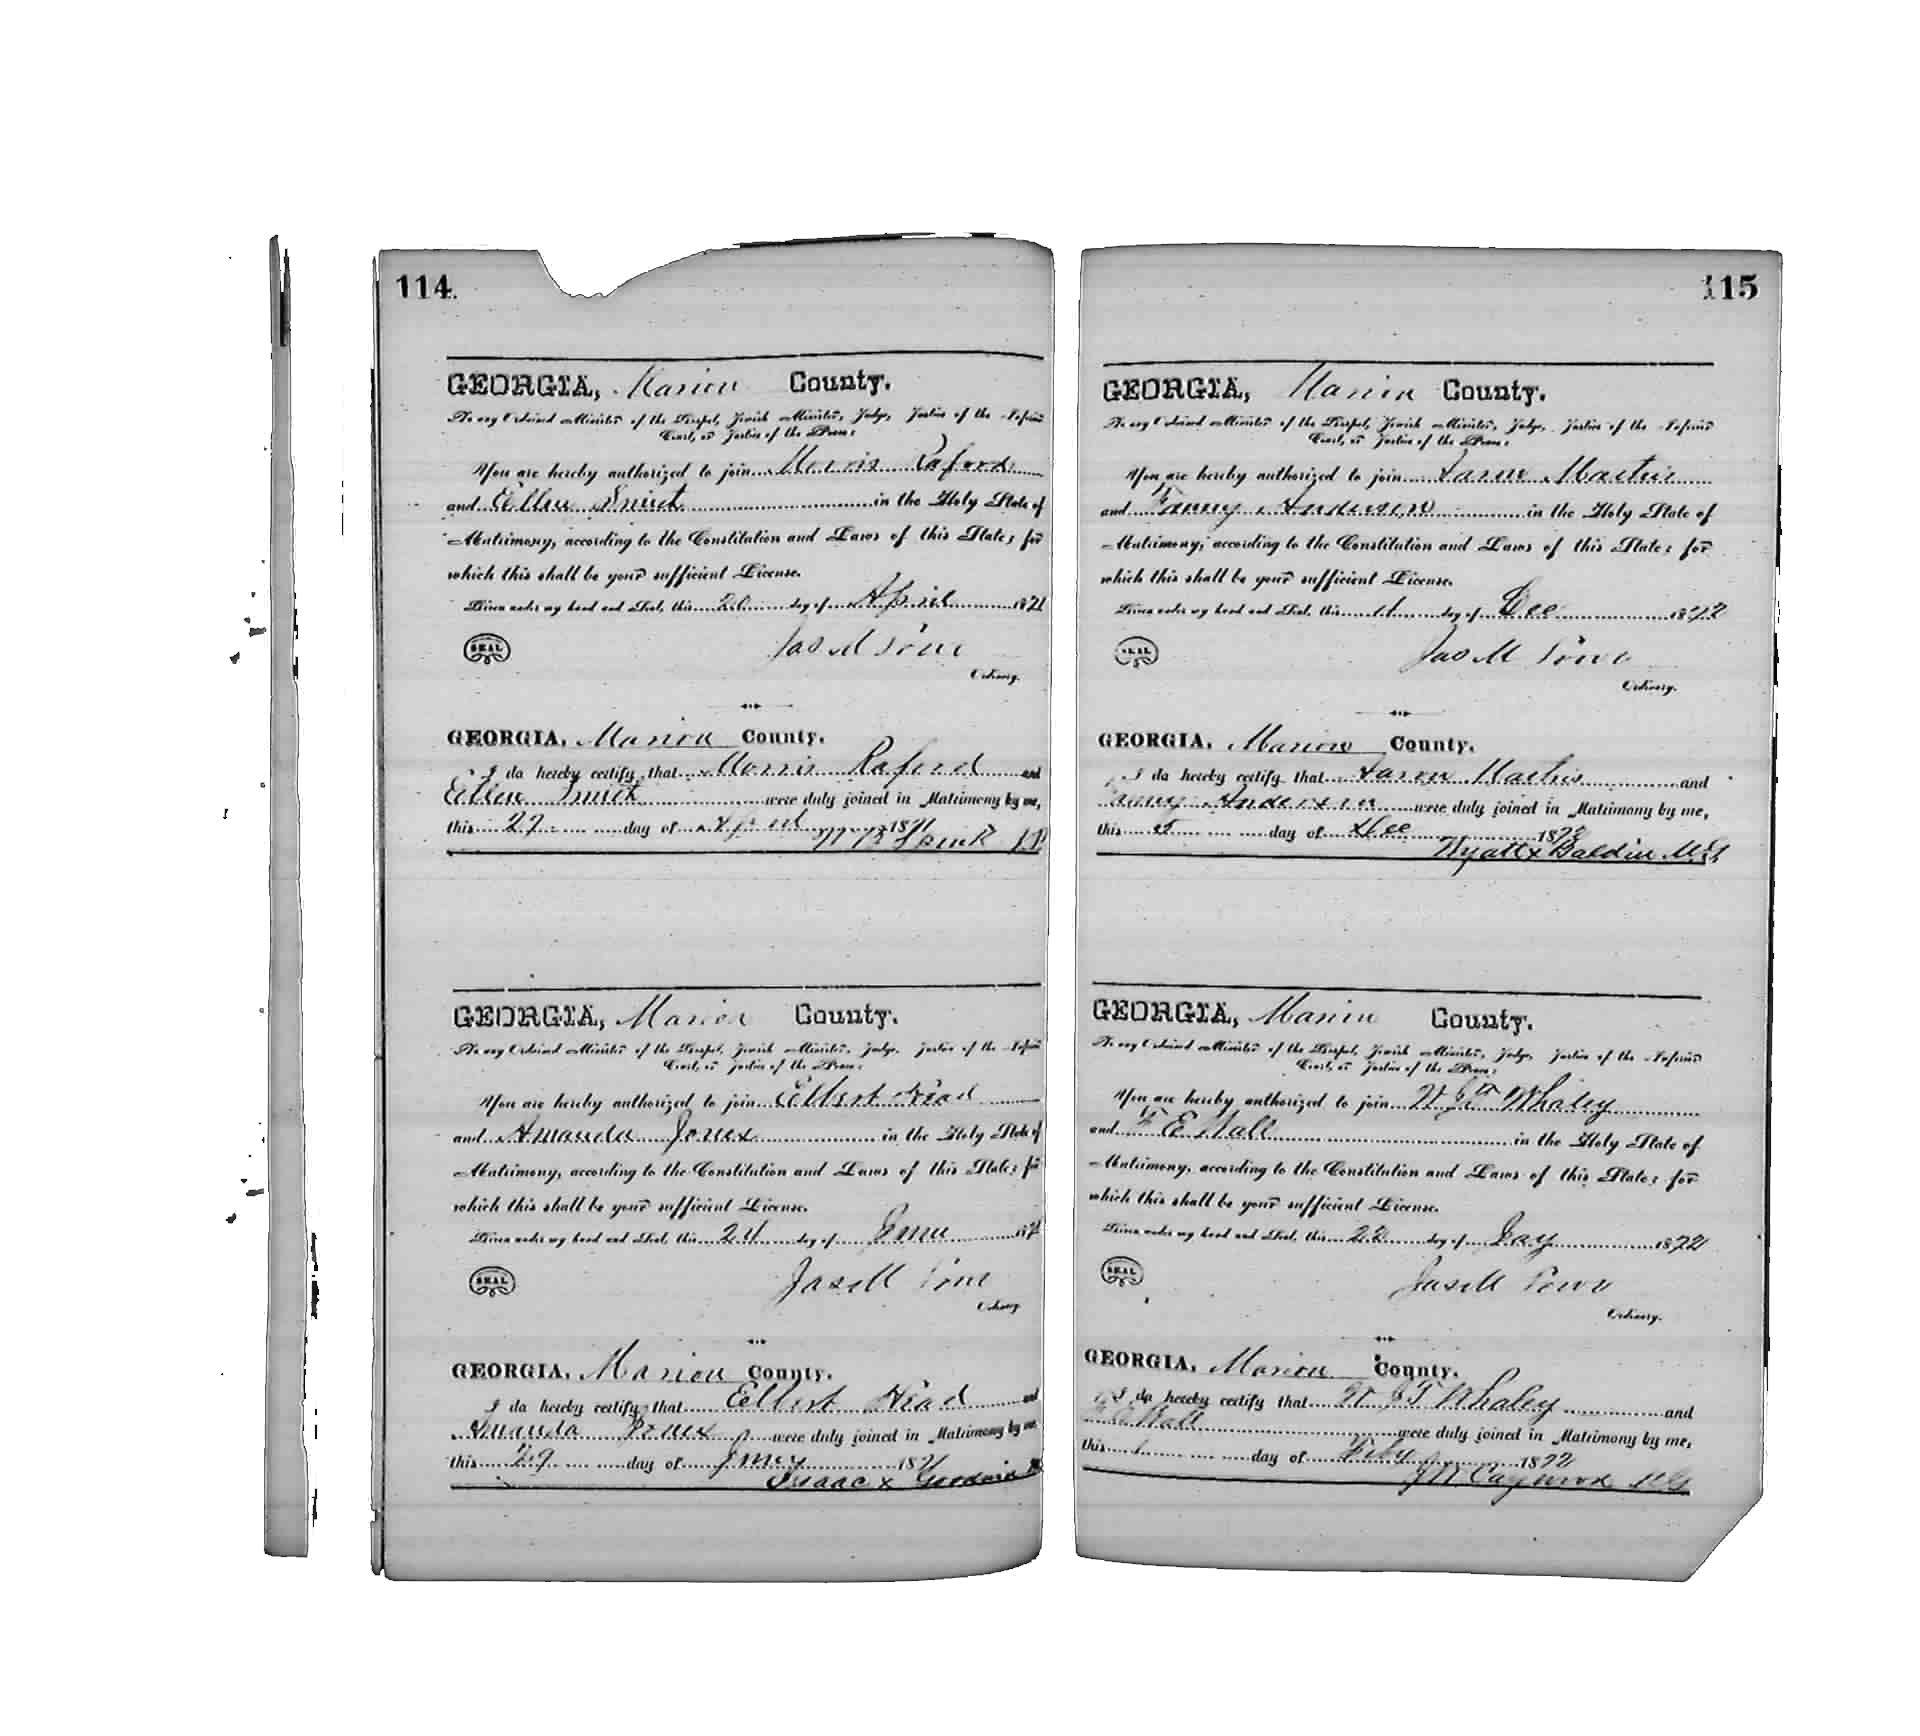 114.
GEORGIA, Marion County.
To any Ordained Minister of the Gospel, Jewish Minister, Judge, Justice of the Inferior
Court, or Justice of the Peace:
You are hereby authorized to join Morris Raford
and Ellen Smith in the Holy State of
Matrimony, according to the Constitution and Laws of this State; for
which this shall be your sufficient License.
Given under my hand and Seal, this 20 day of April 1871
SEAL
Jas M
Ordinary.
GEORGIA, Marion County.
I do hereby certify that Morris Raford and
Ellen Smith were duly joined in Matrimony by me,
this 27 day of April 1871
GEORGIA, Marion County.
To any Ordained Minister of the Gospel, Jewish Minister, Judge, Justice of the Inferior
Court, or Justice of the Peace:
You are hereby authorized to join Elbert Head
and Amanda Jones in the Holy State of
Matrimony, according to the Constitution and Laws of this State; for
which this shall be your sufficient License.
Given under my hand and Seal, this 24 day of 187
SEAL
Jas M
Ordinary
GEORGIA, Marion County.
I do hereby certify that Elbert Head and
Amanda Jones were duly joined in Matrimony by me
this 29 day of 1871
Isaac x
115
GEORGIA, Marion County.
To any Ordained Minister of the Gospel, Jewish Minister, Judge, Justice of the Inferior
Court, or Justice of the Peace:
You are hereby authorized to join Aaron Mathis
and Fanny Anderson in the Holy State of
Matrimony, according to the Constitution and Laws of this State; for
which this shall be your sufficient License.
Given under my hand and Seal, this day of Dec 1872
SEAL
Jas M
Ordinary.
GEORGIA, Marion County.
I do hereby certify that Aaron Mathis and
Fanny Anderson were duly joined in Matrimony by me,
this 5 day of Dec 1872
Wyatt x Baldin M.G
GEORGIA, Marion County.
To any Ordained Minister of the Gospel, Jewish Minister, Judge, Justice of the Inferior
Court, or Justice of the Peace:
You are hereby authorized to join W J T Whaley
and F E Wall in the Holy State of
Matrimony, according to the Constitution and Laws of this State; for
which this shall be your sufficient License.
Given under my hand and Seal, this 22 day of 1872
SEAL
Jas M
Ordinary.
GEORGIA, Marion County.
I do hereby certify that W J T Whaley and
F E Wall were duly joined in Matrimony by me,
this 1 day of Feby 1872